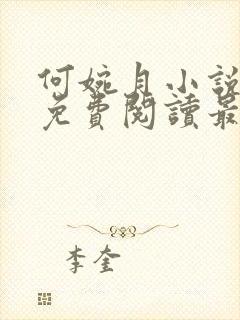 何婉月小說
免費閱讀最
李奎